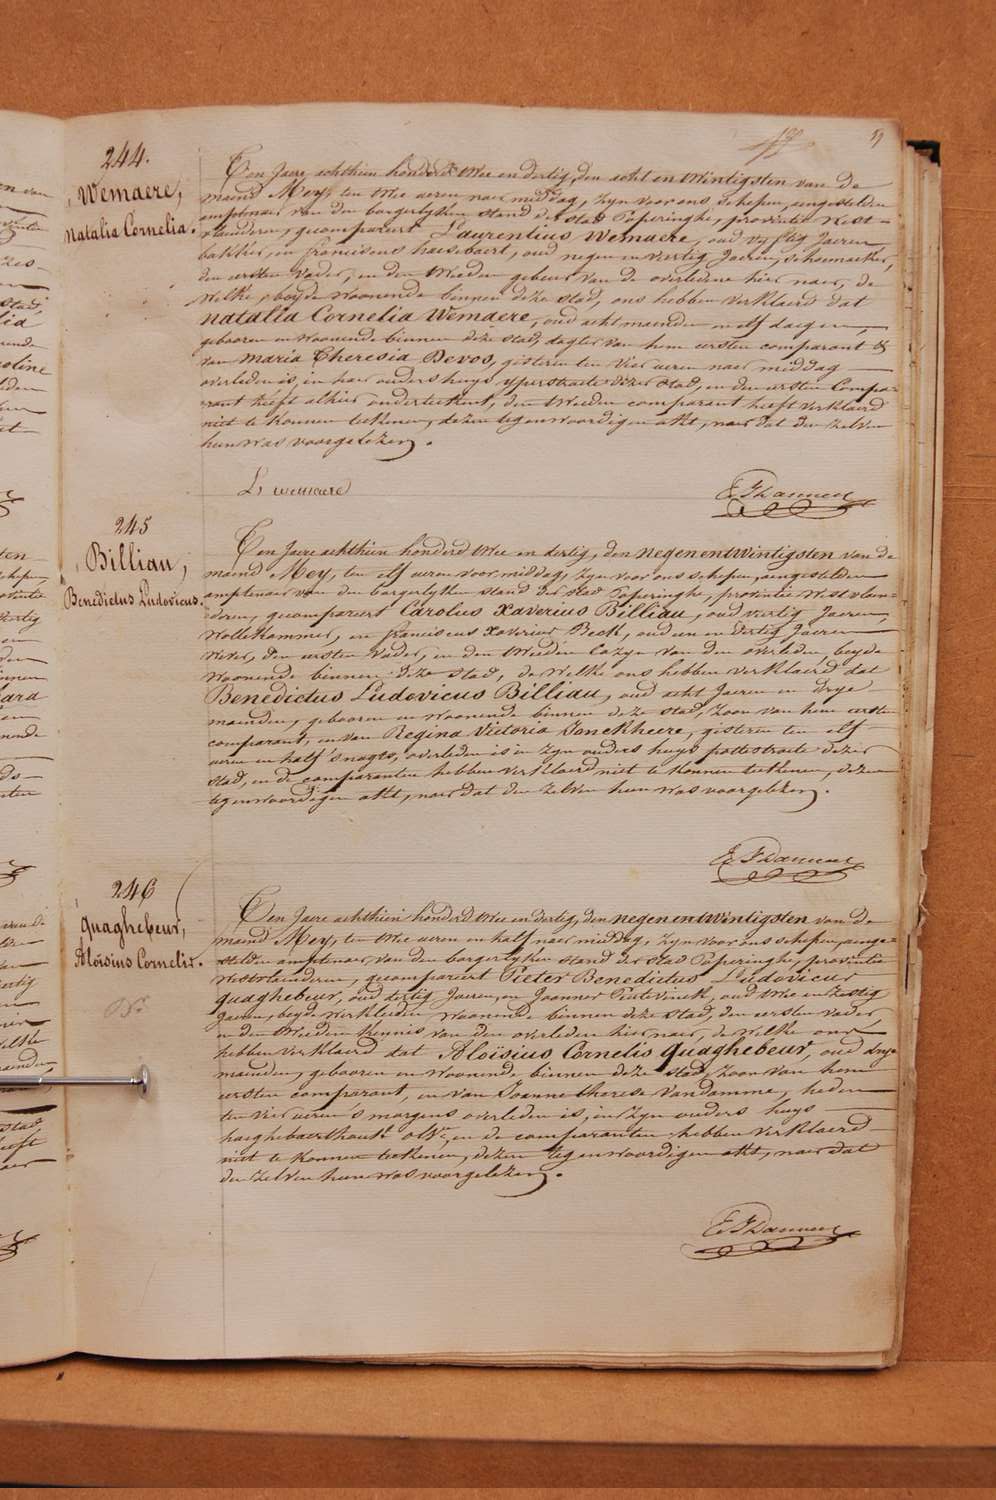 59
244.
Wemaere,
Natalia Cornelia.
Ten Jaere achthien honderd twee en dertig, den acht en twintigsten van de
maend Mey, ten twee ueren naer middag, zyn voor ons schepen, aengestelden
amptenaer van den borgerlyken stand der stad Poperinghe, provintie West-
vlaenderen, gecompareert Laurentius Wemaere, oud vyftig Jaeren,
bakker, en franciscus haesebaert, oud negen en veertig Jaeren, schoenmaeker,
den eersten vader, en den tweeden gebuer van de overledene hier naer, de
welke, beyde woonende binnen deze stad, ons hebben verklaerd dat
Natalia Cornelia Wemaere, oud acht maenden en elf daegen,
gebooren en woonende binnen deze stad, dogter van hem eersten comparant &
van Maria Theresia Devos, gisteren ten vier ueren naer middag
overleden is, in haer ouders huys yperstraete dezer stad, en den eersten Compa-
rant heeft alhier onderteekent, den tweeden comparant heeft verklaerd
niet te konnen teekenen, dezen tegenwoordigen akt, naer dat den zelven
hun was voorgelezen.
L. wemaere
245
Billiau,
Benedictus Ludovicus.
Ten Jaere achthien honderd twee en dertig, den negenentwintigsten van de
maend Mey, ten elf ueren voor middag, zyn voor ons schepen, aengestelden
amptenaer van den borgerlyken stand der stad Poperinghe, provintie Westvlaen-
deren, gecompareert Carolus Xaverius Billiau, oud veertig Jaeren,
wollekammer, en franciscus Xaverius Beck, oud een en dertig Jaeren
wever, den eersten vader, en den tweeden Cozyn van den overleden, beyde
woonende binnen deze stad, de welke ons hebben verklaerd dat
Benedictus Ludovicus Billiau, oud acht Jaeren en drye
maenden, gebooren en woonende binnen deze stad, zoon van hem eersten
comparant, en van Regina Victoria Jonckheere, gisteren ten elf
ueren en half 's nagts, overleden is in zyn ouders huys pottestraete dezer
stad, en de comparanten hebben verklaerd niet te konnen teekenen, dezen
tegenwoordigen akt, naer dat den zelven hun was voorgelezen.
246
Quaghebeur,
Aloïsius Cornelis.
Ten Jaere achthien honderd twee en dertig, den negenentwintigsten van de
maend Mey, ten twee ueren en half naer middag, zyn voor ons schepen, aenge-
stelden amptenaer van den borgerlyken stand der stad Poperinghe, provintie
Westvlaenderen, gecompareert Pieter Benedictus Ludovicus
Quaghebeur, oud dertig Jaeren, en Joannes oud twee en zestig
Jaeren, beyde werklieden woonende binnen deze stad, den eersten vader,
en den tweeden kennis van den overleden hier naer, de welke ons
hebben verklaerd dat Aloïsius Cornelis Quaghebeur, oud drye
maenden, gebooren en woonende binnen deze stad, zoon van hem
eersten comparant, en van Joanna therese Vandamme, heden
ten vier ueren 's morgens overleden is, in zyn ouders huys
en de comparanten hebben verklaerd
niet te konnen teekenen, dezen tegenwoordigen akt, naer dat
den zelven hun was voorgelezen.